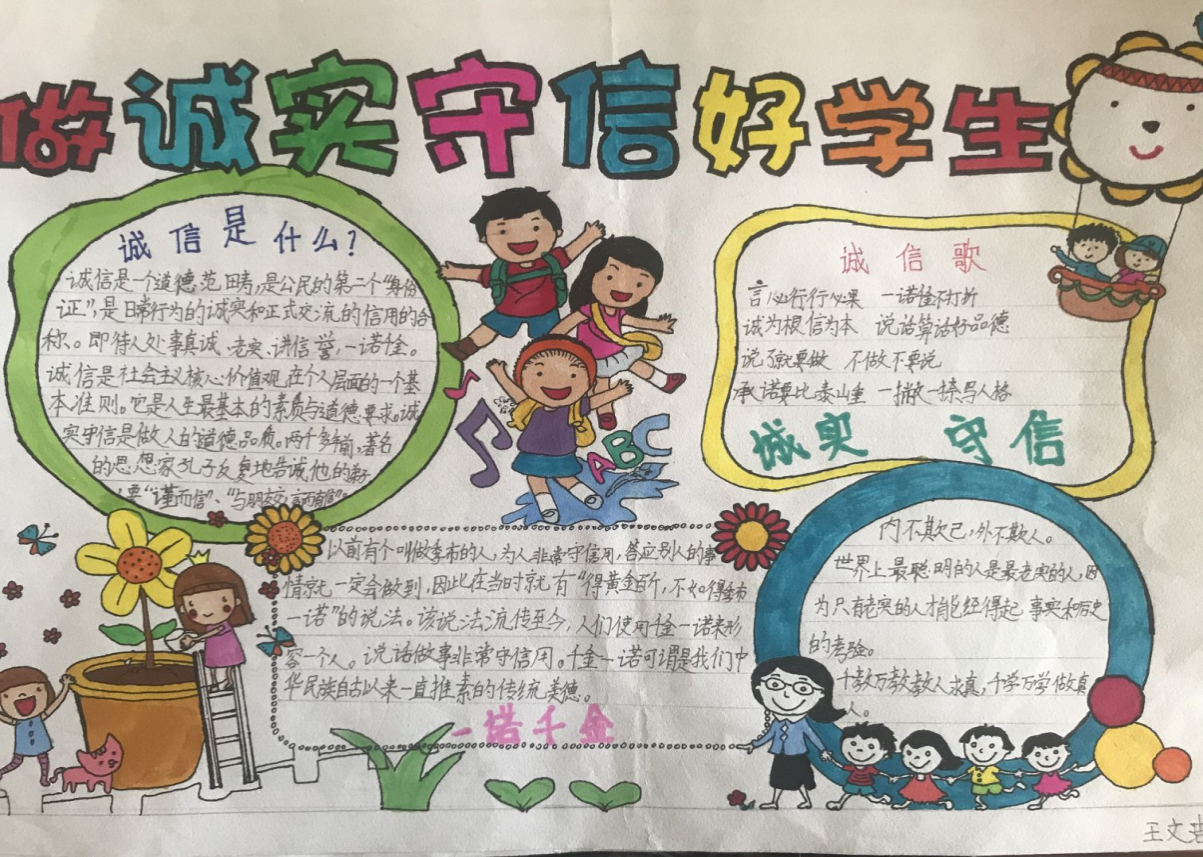 做诚实守信好学生
诚信是什么?
诚信是一个道德范畴,是公民的第二个“身份
证”,是日常行为的诚实和正式交流的信用的合
称。即待人处事真诚、老实、讲信誉,一诺千金。
诚信是社会主义核心价值观,在个人层面的一个基
本准则。它是人生最基本的素质与道德要求。诚
实守信是做人的道德品质。两千多年前,著名
的思想家孔子反复地告诫他的弟子
要“谨而信”、“与朋友交,言而有信”。
诚信歌
言必行行必果 一诺千金不打折
诚为根信为本 说话算话好品德
说了就要做 不做不要说
承诺要比泰山重 一撇一捺写人格
诚实 守信
以前有个叫做季布的人,为人非常守信用,答应别人的事
情就一定会做到,因此在当时就有“得黄金百斤,不如得季布
一诺”的说法。该说法流传至今,人们使用千金一诺来形
容一个人。说话做事非常守信用。千金一诺可谓是我们中
华民族自古以来一直推素的传统美德。
一诺千金
内不欺己,外不欺人。
世界上最聪明的人是最老实的人,因
为只有老实的人才能经得起事实和历史
的考验。
千教万教教人求真,千学万学做真
人。
ABC
王文